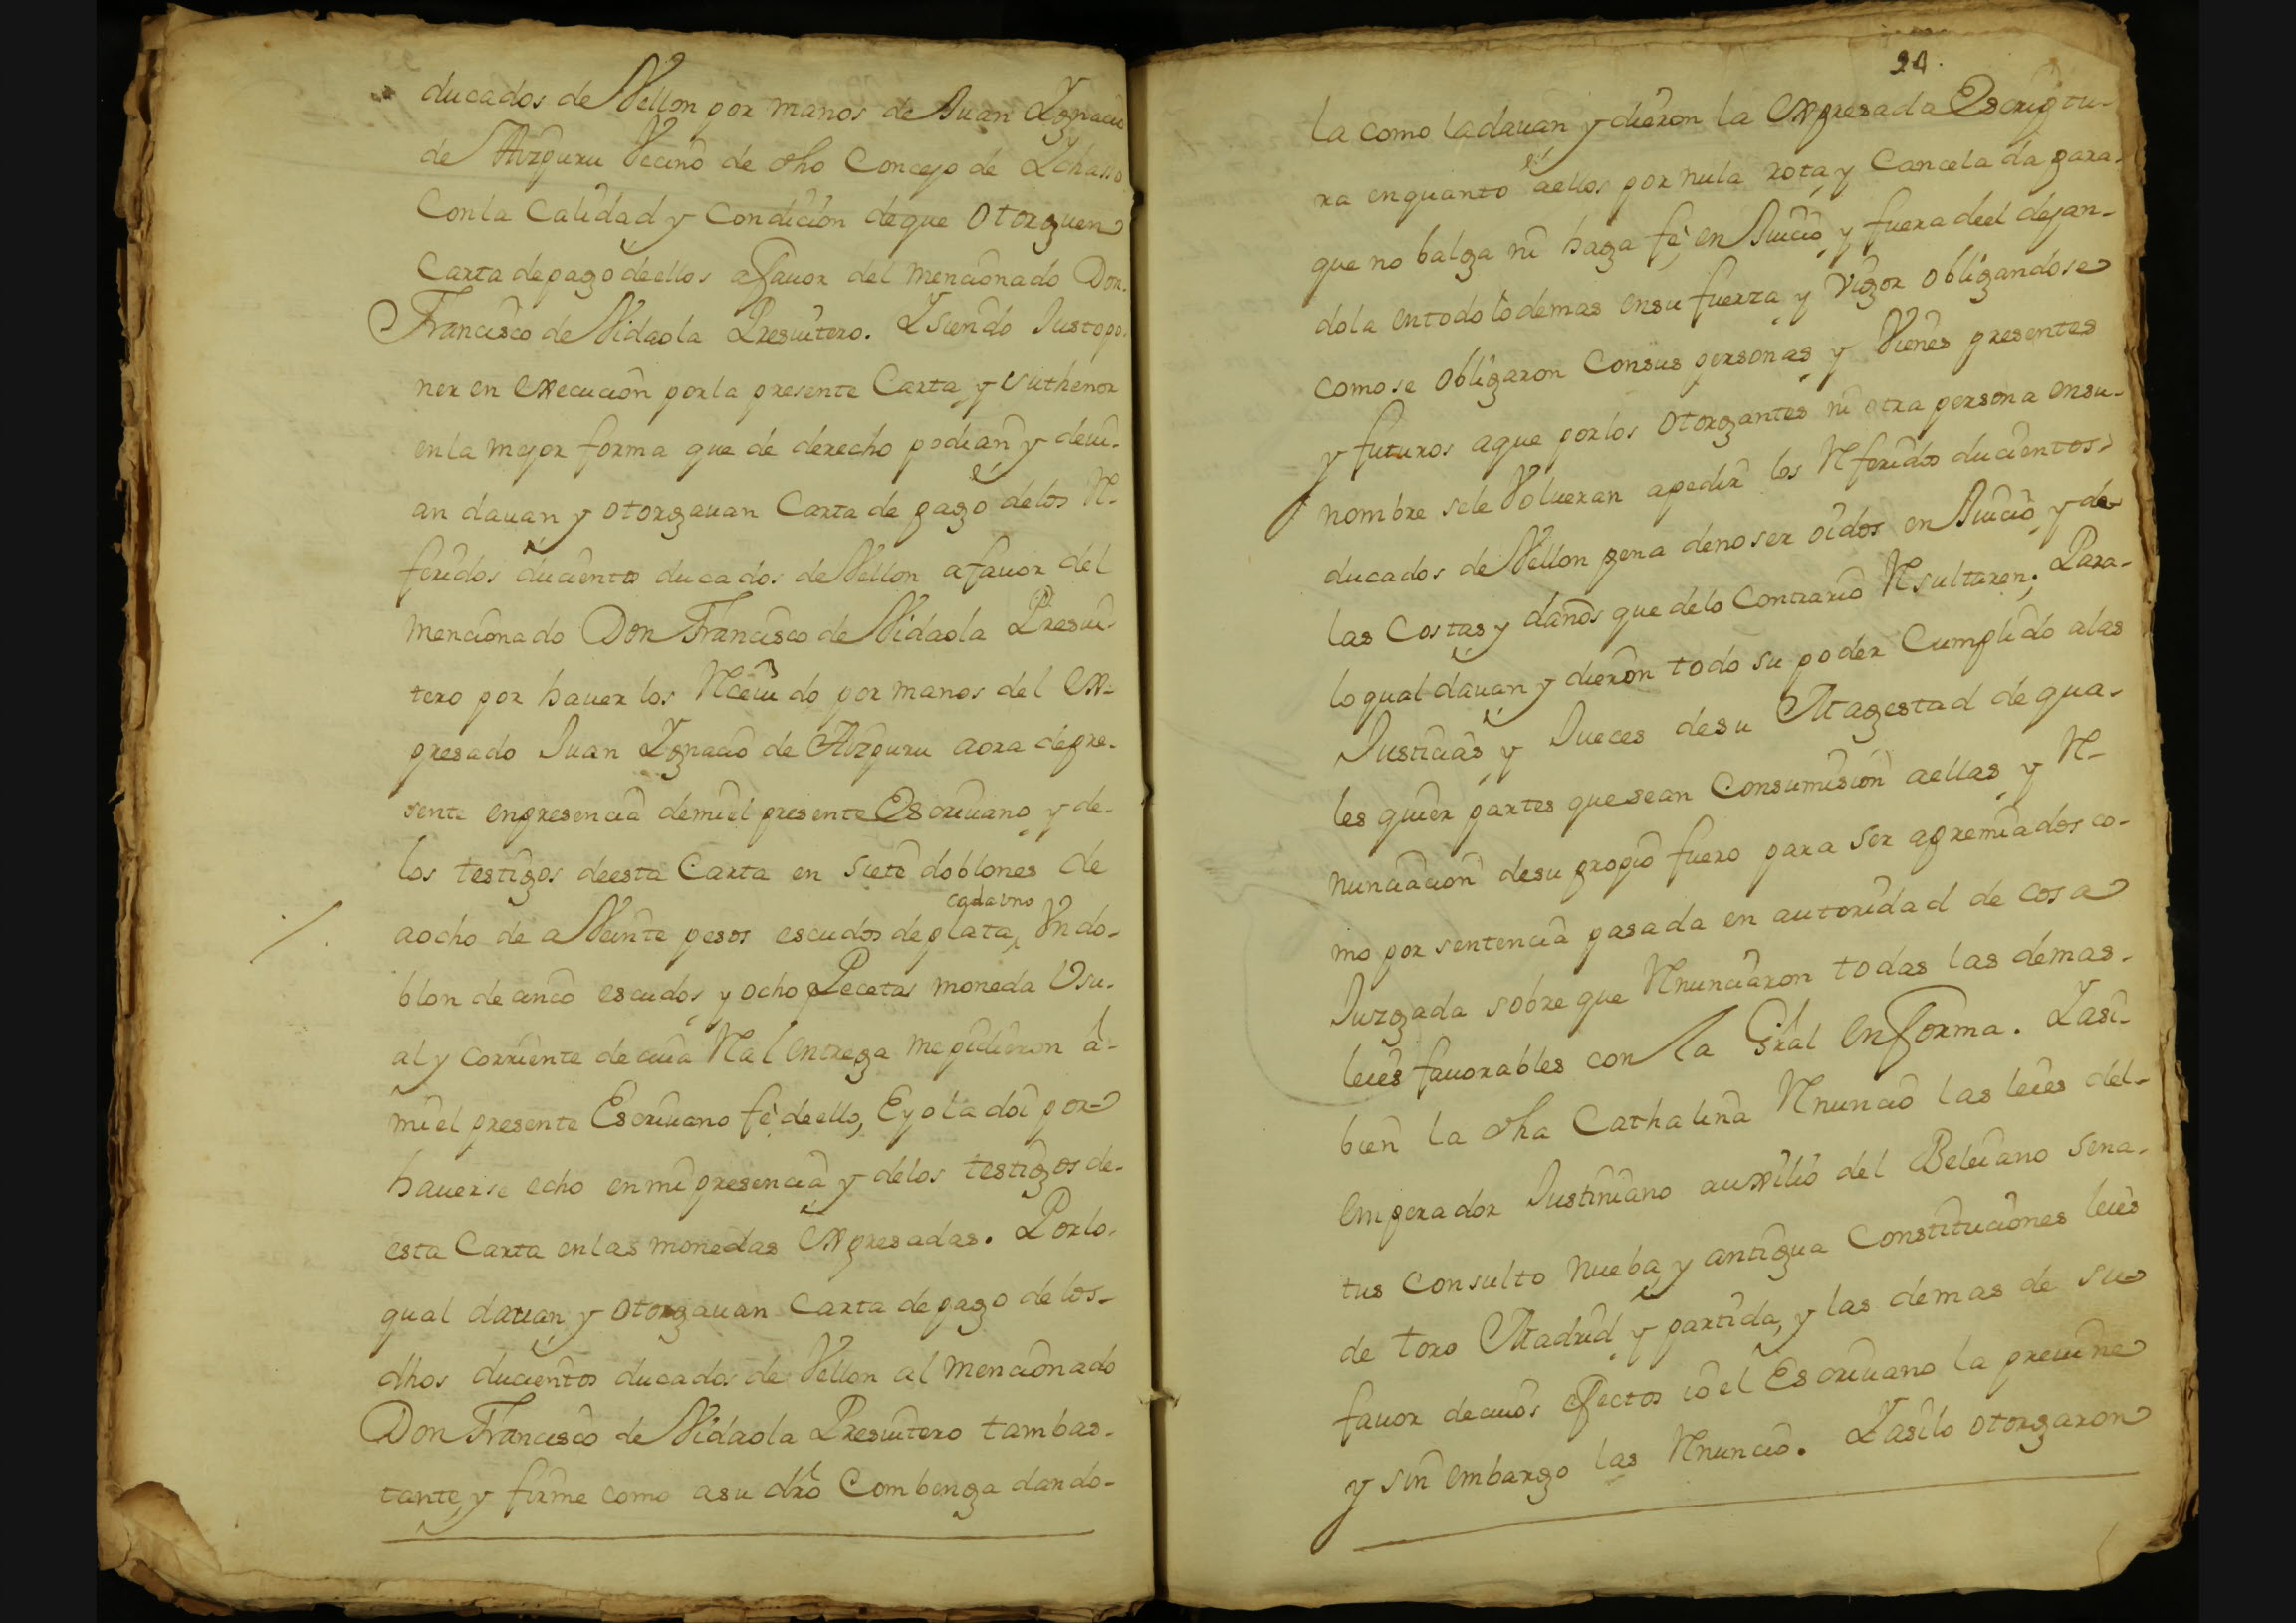 ducados de Vellon por manos de Juan Ygnacio
de Aizpuru Vecino de dho Concejo de Ychasso
Con la Calidad y Condicion deque Otorguen
Carta depago deellos afauor del mencionado Don
Francisco de Vidaola Presuitero. Ysiendo Justo po-
ner en execucion porla presente Carta y suthenor
enla mejor forma que de derecho podian y deui-
an dauan y otorgauan Carta de pago delos Re-
feridos ducientos ducados de Vellon afauor del
mencionado Don Francisco de Vidaola Presui-
tero por hauer los Receuido por manos del ex-
presado Juan Ygnacio de Aizpuru aora depre-
sente enpresencia demi el presente Escriuano y de-
los testigos deesta Carta en siete doblones de
cada uno
aocho de a Veinte pesos escudos deplata, Vn do-
blon de cinco escudos y ocho Pecetas moneda Vsu-
al y corriente de cuia Real Entrega me pidieron á-
mi el presente Escriuano fè deello, E yo la doi por
hauerse echo enmi presencia y delos testigos de-
esta Carta enlas monedas expresadas. Porlo-
qual dauan y otorgauan Carta de pago de los-
dhos ducientos ducados de Vellon al mencionado
Don Francisco de Vidaola Presuitero tambas-
tante, y firme como asu dro Combenga dando-
24.
la como ladauan y dieron la expresada Escriptu-
ra enquanto aellos por nula rota y Cancelada para-
que no balga ni haga fè en Juicio y fuera deel dejan-
dola entodo lodemas ensu fuerza y vigor obligandose
como se obligaron Consus personas y Vienes presentes
y futuros aque porlos Otorgantes ni otra persona ensu-
nombre sele Volueran apedir los Referidos ducientos
ducados de Vellon pena denoser oidos en Juicio y de
las Costas y daños que delo Contrario Resultaren; Para-
lo qual dauan y dieron todo su poder Cumplido alas
Justicias y Jueces desu Magestad de qua-
les quier partes que sean Consumision aellas y Re-
nunciacion desu propio fuero para ser apremiados co-
mo por sentencia pasada en autoridad de cosa
Juzgada sobre que Renunciaron todas las demas-
leies fauorables con la Gral en forma. Yasi-
bien la dha Cathalina Renuncio las leies del-
Emperador Justiniano auxilio del Beleiano Sena-
tus Consulto nueba y antigua Constituciones leies
de toro Madrid y partida, y las demas de su
fauor decuios efectos io el Escriuano la preuine
y sin embargo las Renuncio. Yasilo otorgaron